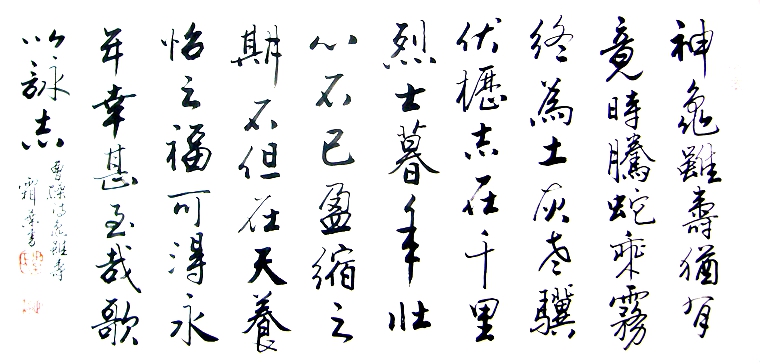 神龜雖壽猶有
竟時騰蛇乘霧
終為土灰老驥
伏櫪志在千里
烈士暮年壯
心不已盈縮之
期不但在天養
怡之福可得永
年幸甚至哉歌
以詠志
曹操詩龜雖壽